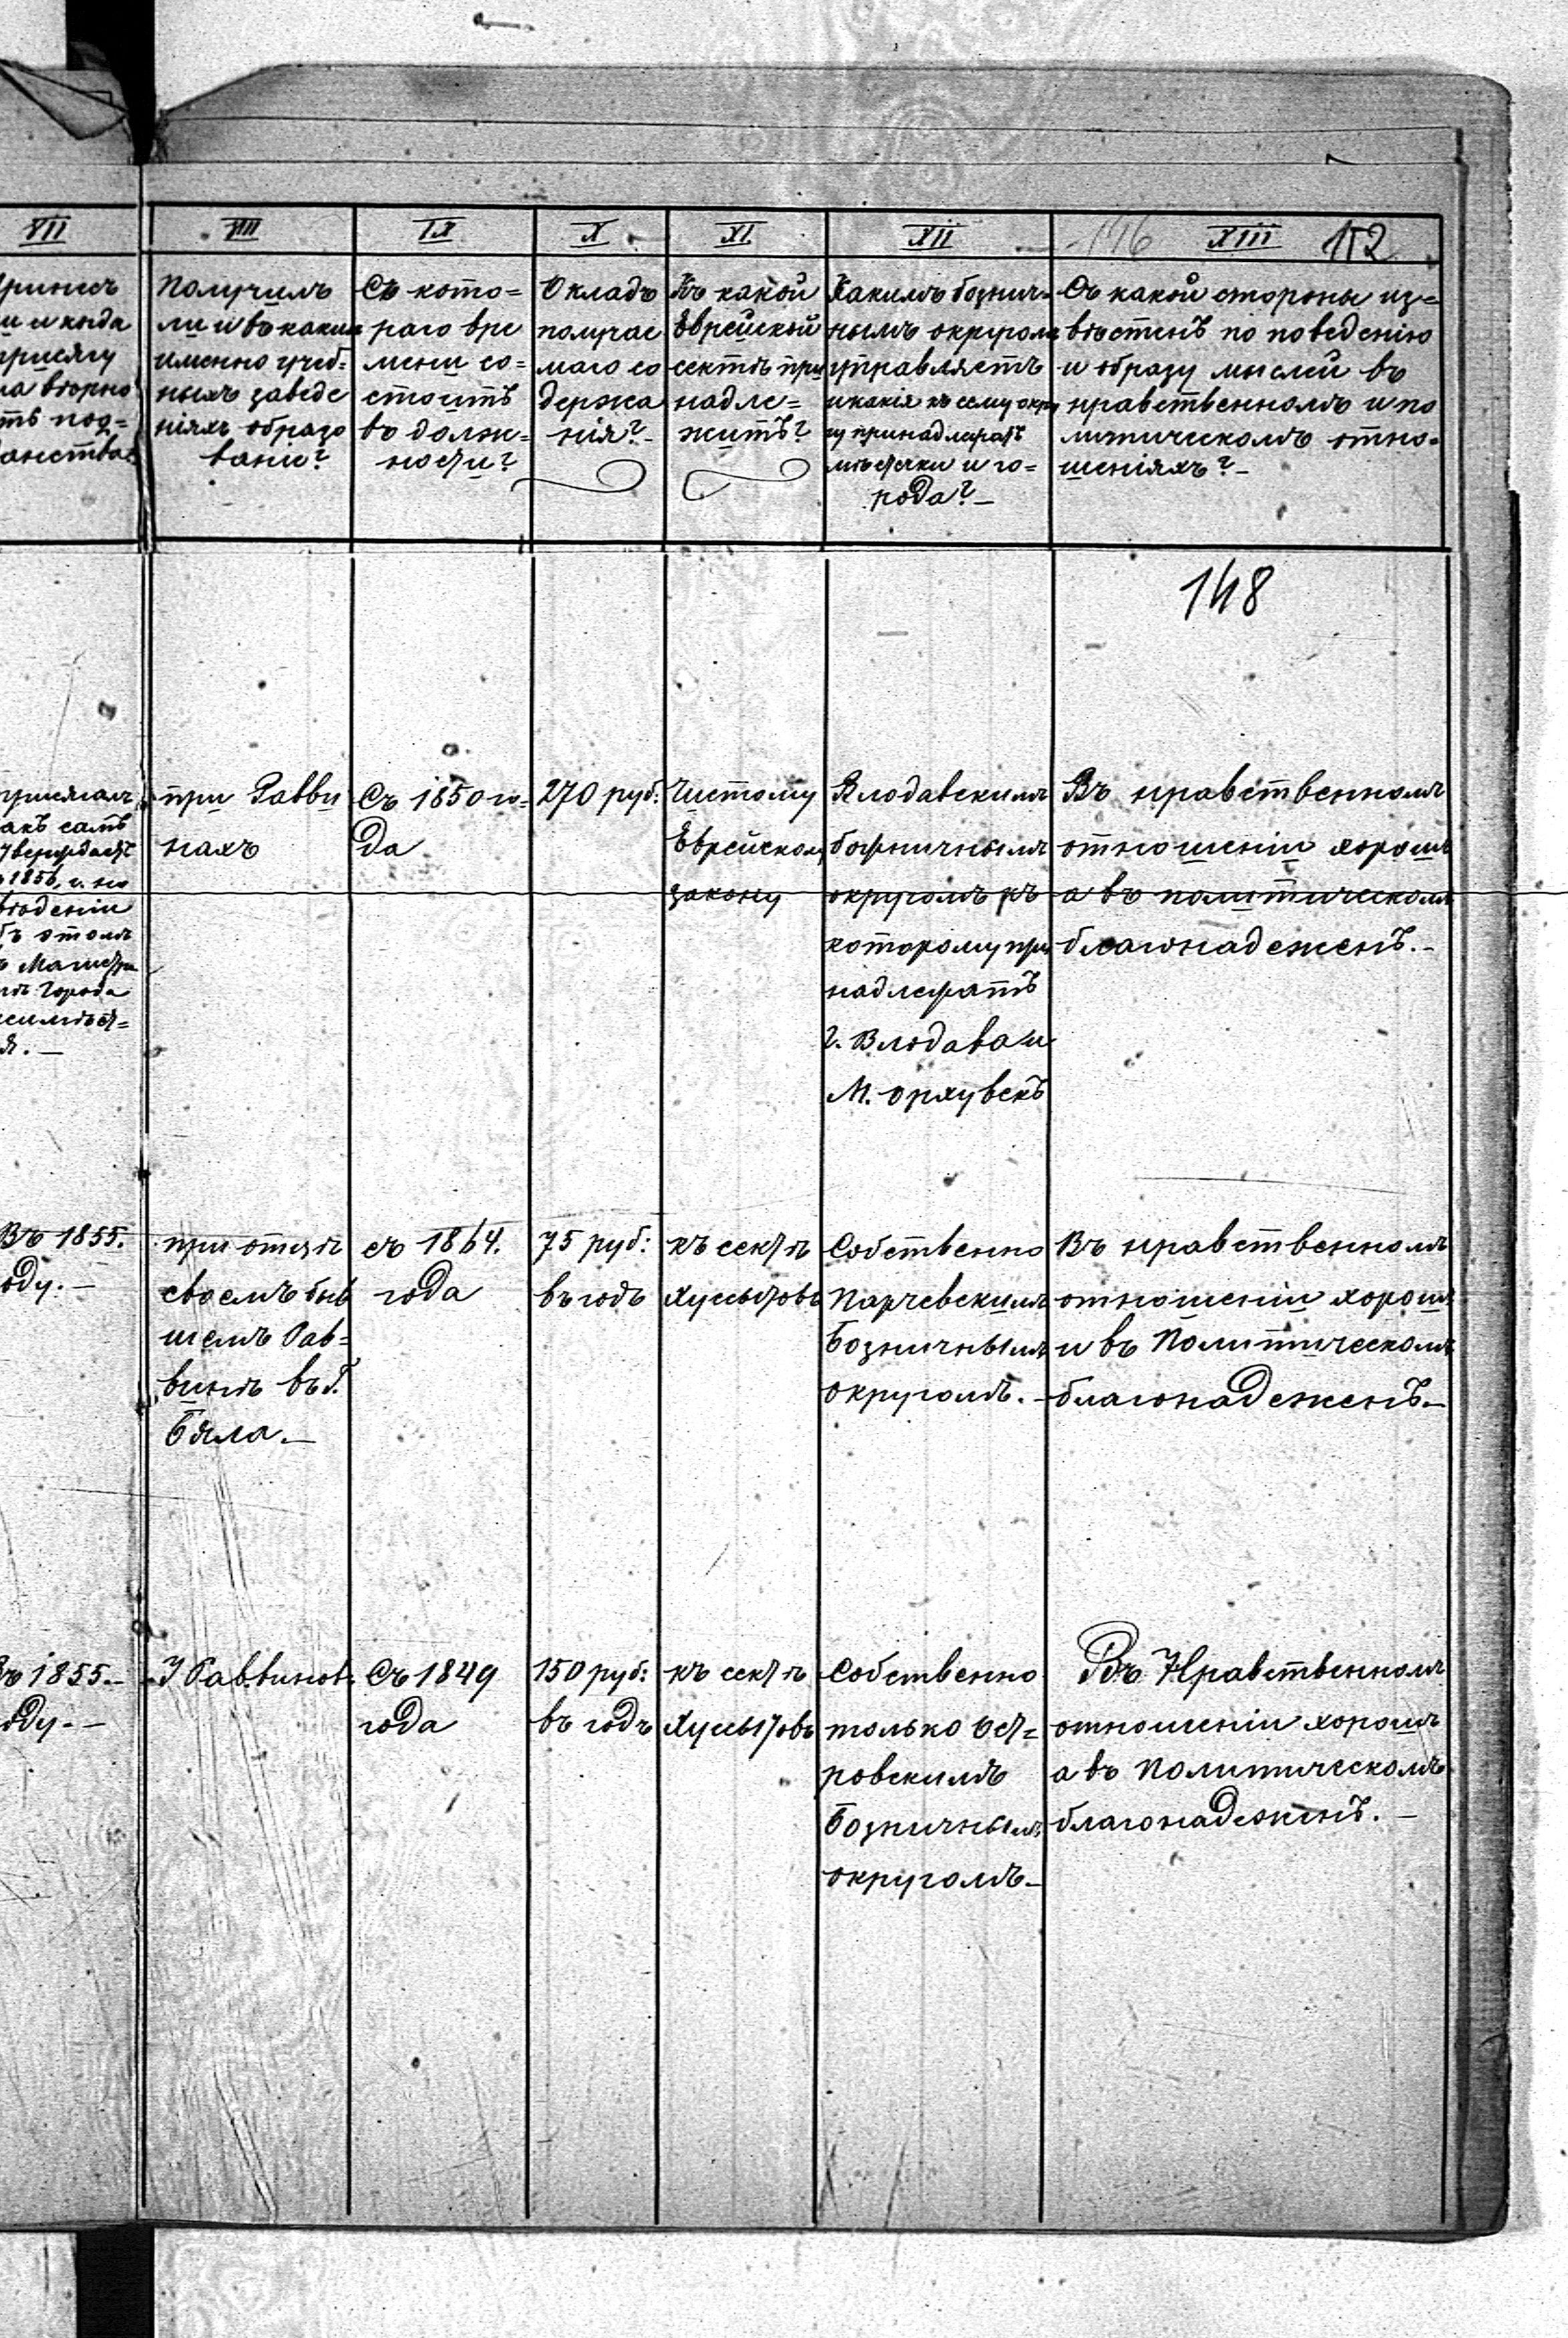 VII
VIII
IX
X
XI.
XII
146
XIII
152
и когда
присягу
на вѣрно
Получилъ
ли и въ какихъ
именно учеб-
ныхъ заведе
ніяхъ образо
вание?
Съ кото=
раго вре
мени со=
стоитъ
въ долж=
ности?
Окладъ
получае
маго со
держа
нія?-
Къ какой
Еврейской
сектѣ при
надле=
житъ?
Какимъ бознич-
нымъ округомъ
управляетъ
и какія къ сему окру
гу принадлежатъ
мѣстечки и го=
рода?-
Съ какой стороны из=
вѣстенъ по поведенію
и образу мыслей въ
нравственномъ и по
литическомъ отно-
шеніяхъ?-
148
такъ самъ
1856, г. но
Города
при Равви
нахъ
Съ 1850 го=
да
270 руб:
Чистому
Еврейскому
закону
Влодавскимъ
божничнымъ
округомъ къ
которому при
надлежатъ
г. Влодава и
М. Орхувекъ
Въ нравственномъ
отношеніи хорошъ
а въ политическомъ
благонадеженъ.-
Въ 1855.
оду.-
при отцѣ
своемъ быв
шемъ Рав=
винѣ въ г.
Бяла.-
съ 1864.
года
75 руб:
въ годъ
къ сектѣ
Хуссытовъ
Собственно
Парчевскимъ
Бозничнымъ
округомъ.-
Въ нравственномъ
отношеніи хорошъ
и въ Политическомъ
благонадеженъ.-
Въ 1855.-
оду.-
У Раввиновъ
Съ 1849
года
150 руб:
въ годъ
къ сектѣ
Хуссытовъ
Собственно
только Ост=
ровскимъ
Бозничнымъ
округомъ-
Въ Нравственномъ
отношеніи хорошъ
а въ Политическомъ
благонадеженъ.-